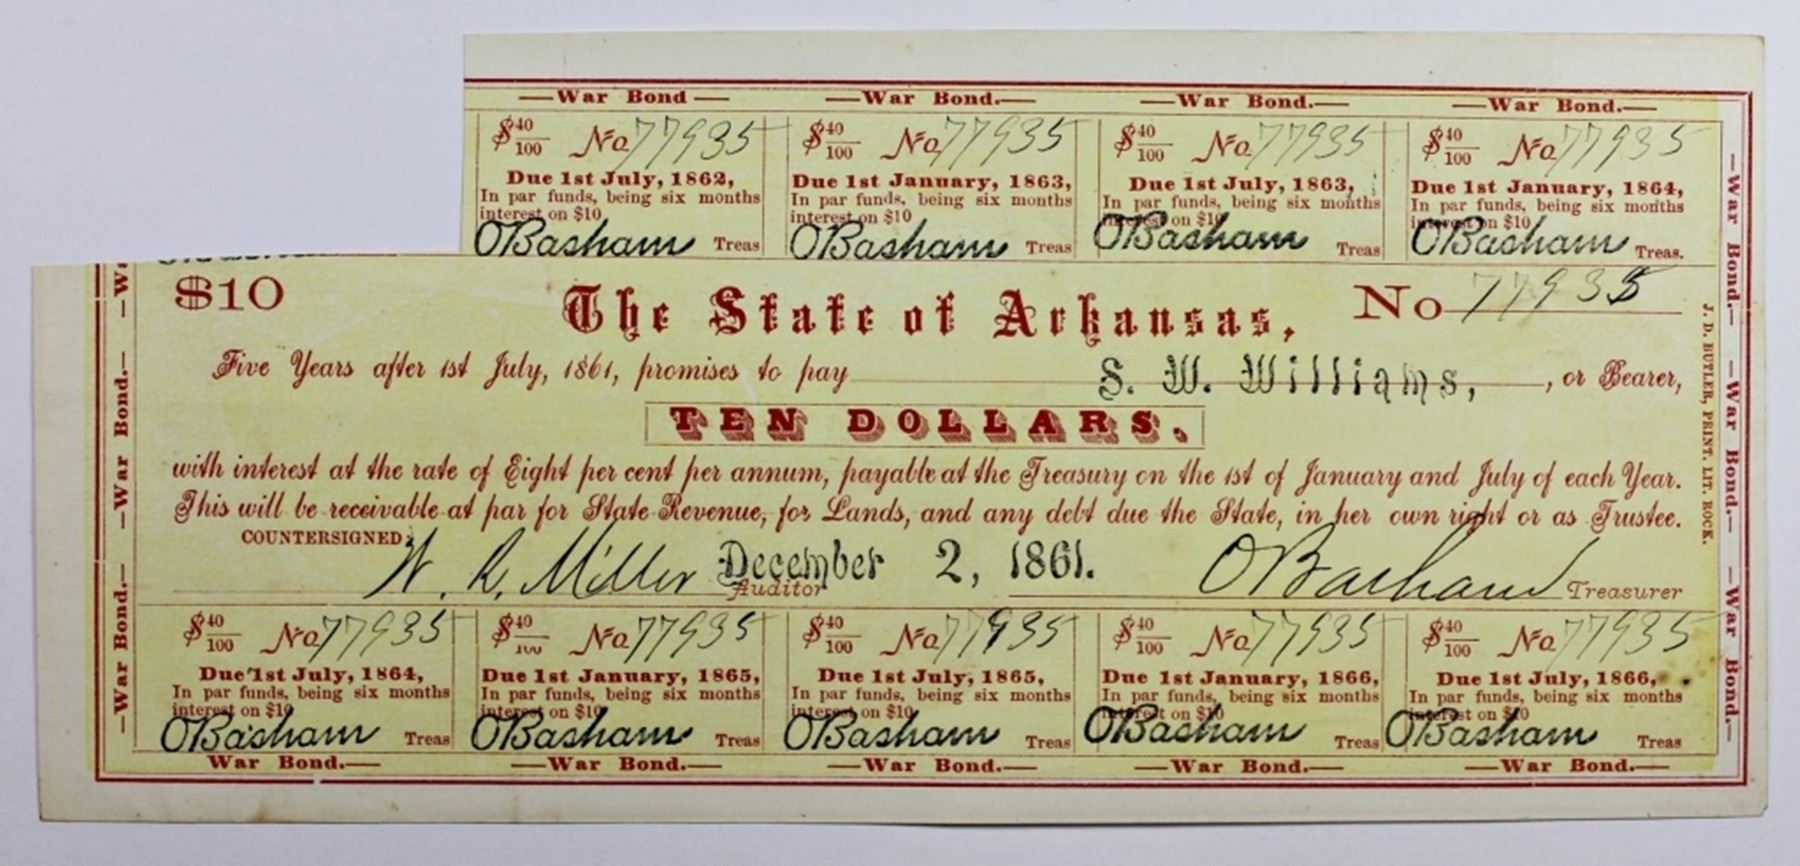 —War Bond—
—War Bond.—
—War Bond.—
—War Bond.—
$40/100 No 77935
$40/100 No 77935
$40/100 No 77935
$40/100 No 77935
Due 1st July, 1862,
Due 1st January, 1863,
Due 1st July, 1863,
Due 1st January, 1864,
In par funds, being six months
In par funds, being six months
In par funds, being six months
In par funds, being six months
interest on $10
interest on $10
interest on $10
interest on $10
O Basham Treas
O Basham Treas
O Basham Treas
O Basham Treas.
$10
The State of Arkansas,
No 77935
Five Years after 1st July, 1861, promises to pay S. W. Williams, , or Bearer,
TEN DOLLARS.
with interest at the rate of Eight per cent per annum, payable at the Treasury on the 1st of January and July of each Year.
This will be receivable at par for State Revenue, for Lands, and any debt due the State, in her own right or as Trustee.
COUNTERSIGNED:
W. R. Miller December 2, 1861. O Basham
Auditor
Treasurer
$40/100 No 77935
$40/100 No 77935
$40/100 No 77935
$40/100 No 77935
$40/100 No 77935
Due 1st July, 1864,
Due 1st January, 1865,
Due 1st July, 1865,
Due 1st January, 1866,
Due 1st July, 1866,
In par funds, being six months
In par funds, being six months
In par funds, being six months
In par funds, being six months
In par funds, being six months
interest on $10
interest on $10
interest on $10
interest on $10
interest on $10
O Basham Treas
O Basham Treas
O Basham Treas
O Basham Treas
O Basham Treas
War Bond.—
—War Bond.—
—War Bond.—
—War Bond.—
—War Bond.—
—War Bond.—
—War Bond.—
—Wa
—War Bond.—
—War Bond.—
—War Bond.—
J. D. BUTLER, PRINT. LIT. ROCK.